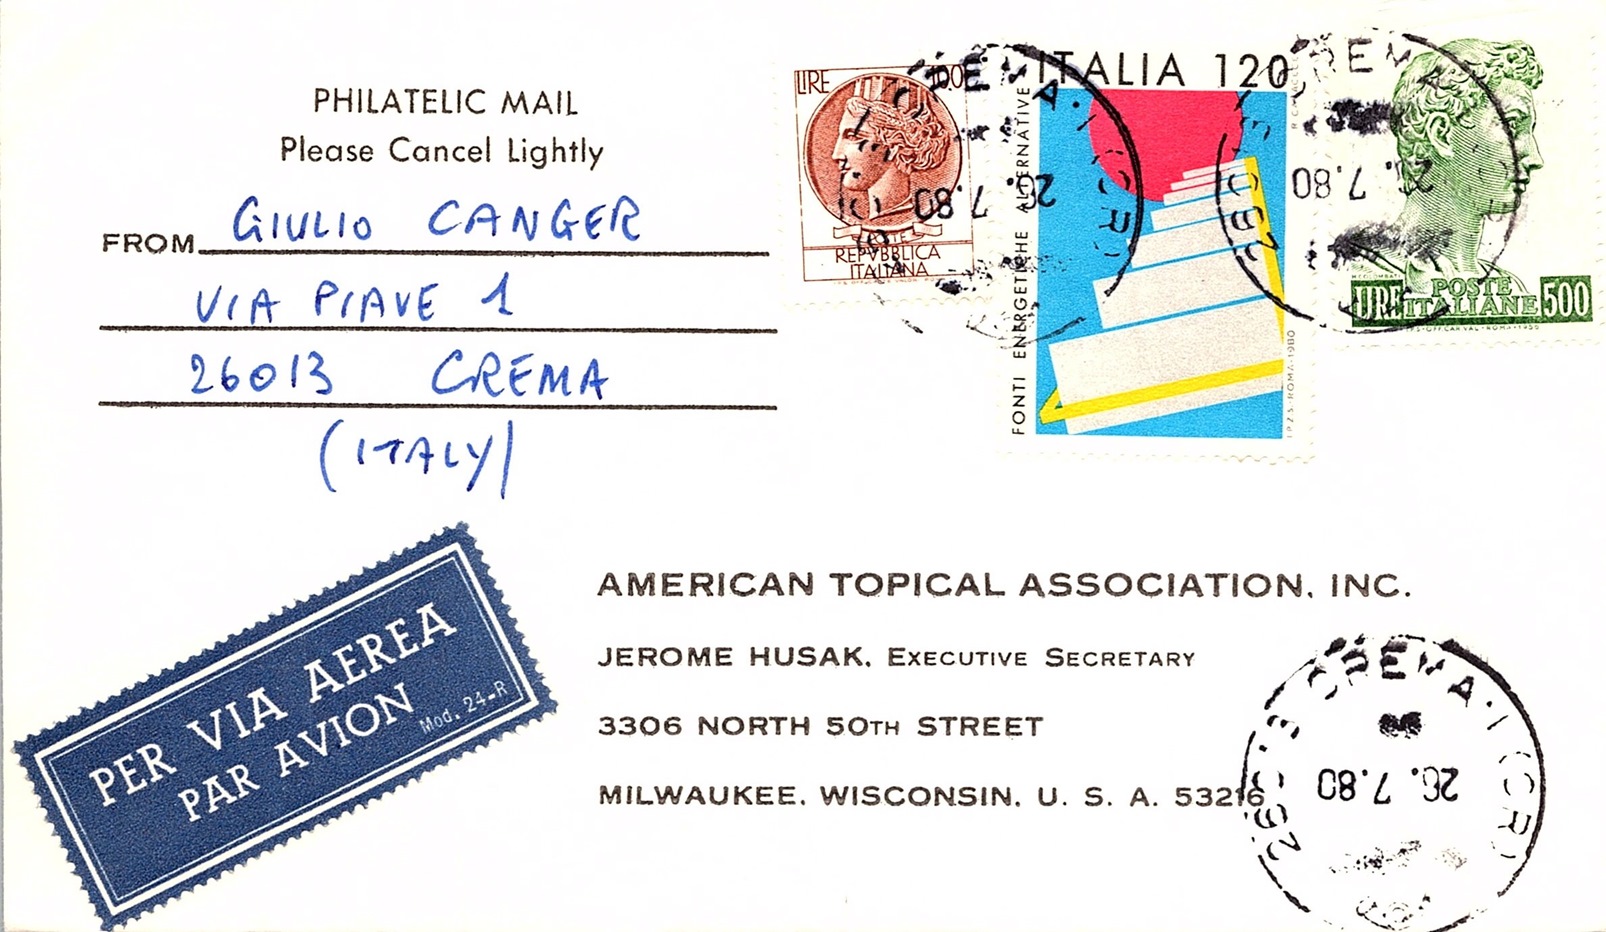 PHILATELIC MAIL
Please Cancel Lightly
FROM GIULIO CANGER
VIA PIAVE 1
26013 CREMA
(ITALY)
LIRE 100
REPVBBLICA
ITALIANA
ITALIA 120
FONTI ENERGETICHE ALTERNATIVE
I.P.Z.S.-ROMA-1980
POSTE
LIRE ITALIANE 500
CREMA
26.7.80
CREMA
7.80
PER VIA AEREA
PAR AVION
Mod. 24-R
AMERICAN TOPICAL ASSOCIATION, INC.
JEROME HUSAK, EXECUTIVE SECRETARY
3306 NORTH 50TH STREET
MILWAUKEE, WISCONSIN, U. S. A. 53216
CREMA (CR)
26.7.80